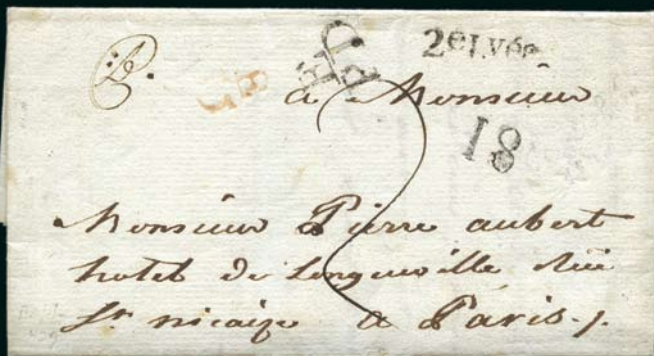 2e Lvée
a Monsieur
18
Monsieur Pierre aubert
hotel de Longueville Rüe
St nicaize a Paris